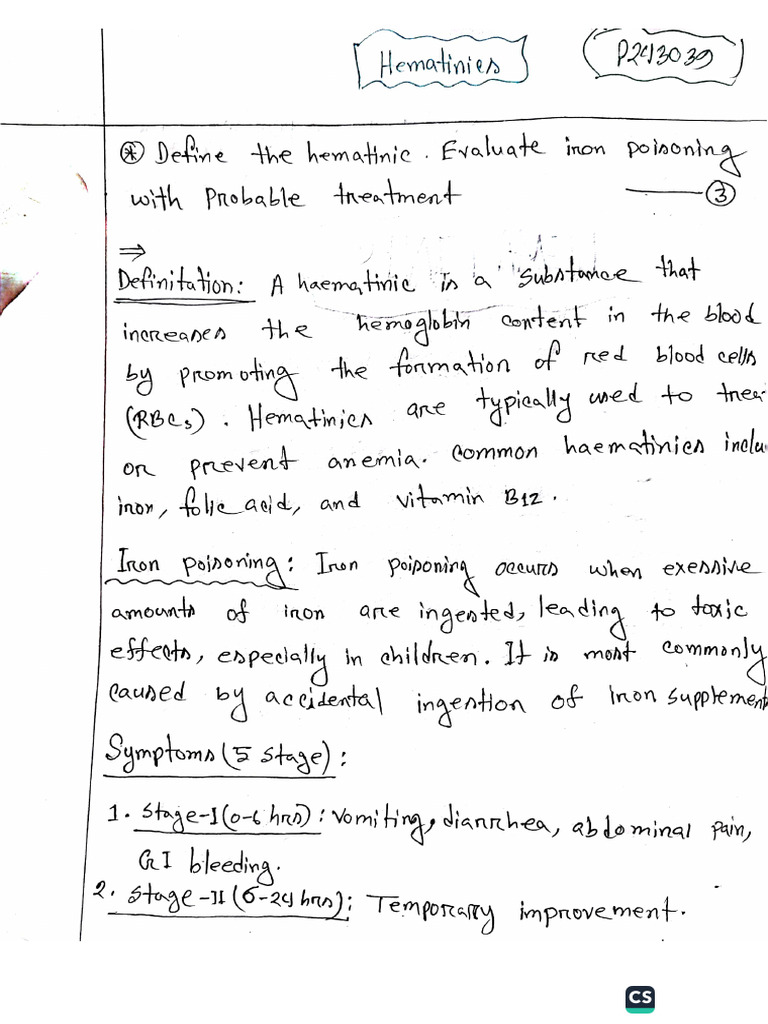 Hematinics
P243039
* Define the hematinic. Evaluate iron poisoning
with Probable treatment —— 3
⇒
Definitation: A haematinic is a substance that
increases the hemoglobin content in the blood
by promoting the formation of red blood cells
(RBCs). Hematinics are typically used to trea
or prevent anemia. common haematinics inclu
iron, folic acid, and vitamin B12.
Iron poisoning: Iron poisoning occurs when exessive
amounts of iron are ingested, leading to toxic
effects, especially in children. It is most commonly
caused by accidental ingestion of iron supplement
Symptoms (5 stage):
1. Stage-I (0-6 hrs): vomiting, diarrhea, abdominal pain,
GI bleeding.
2. Stage-II (6-24 hrs): Temporary improvement.
CS